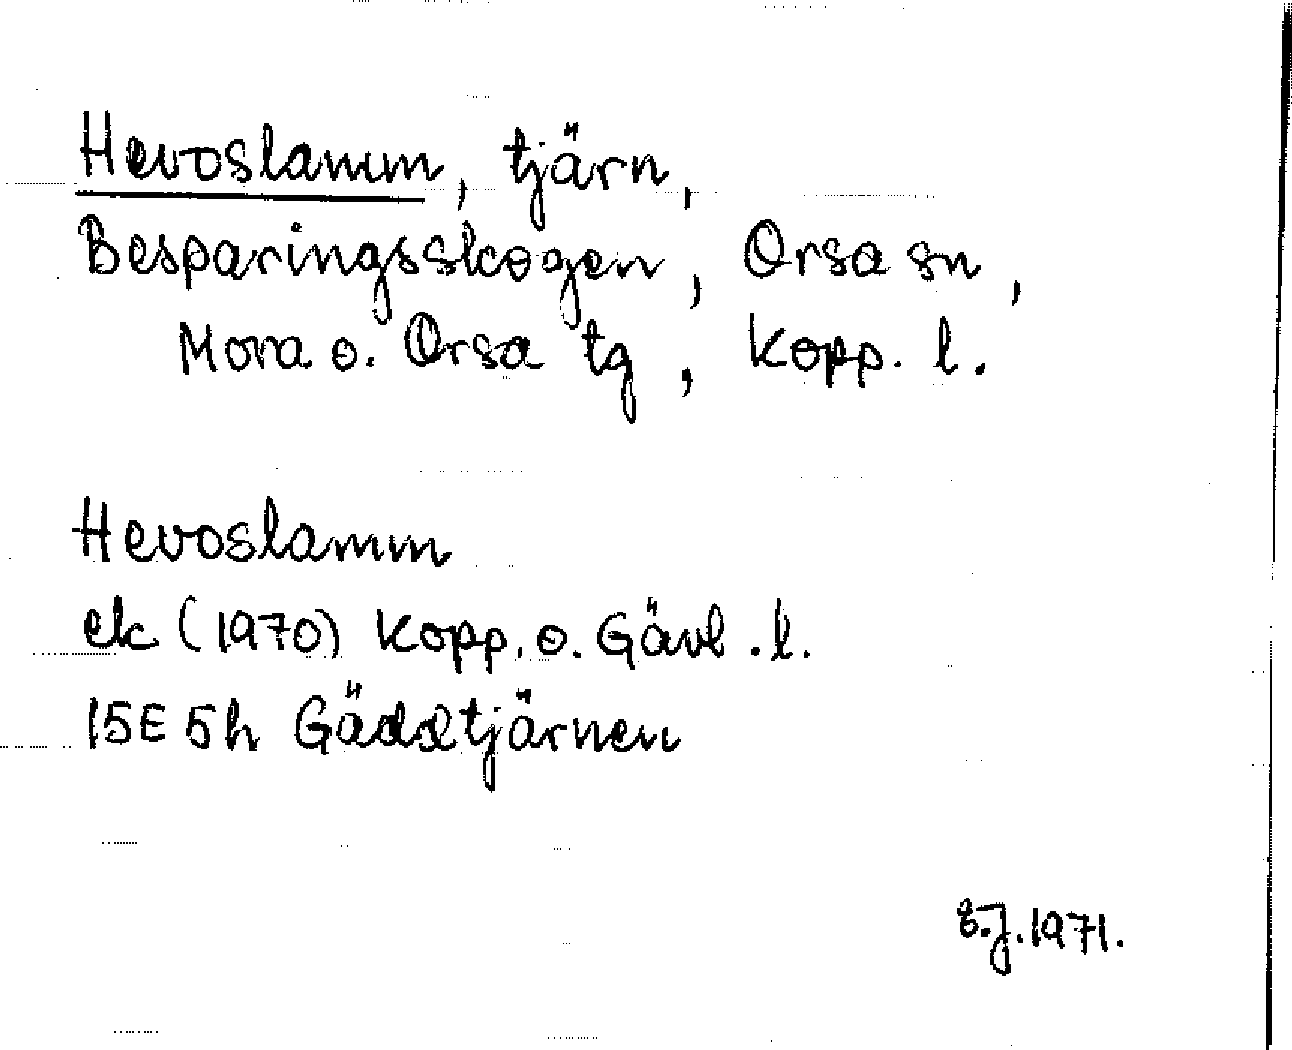 Hevoslamm, tjärn,
Besparingsskogen, Orsa sn,
Mora o. Orsa tg, Kopp. l.
Hevoslamm
ek (1970) Kopp. o. Gävl. l.
15E 5h Gäddtjärnen
E.J. 1971.